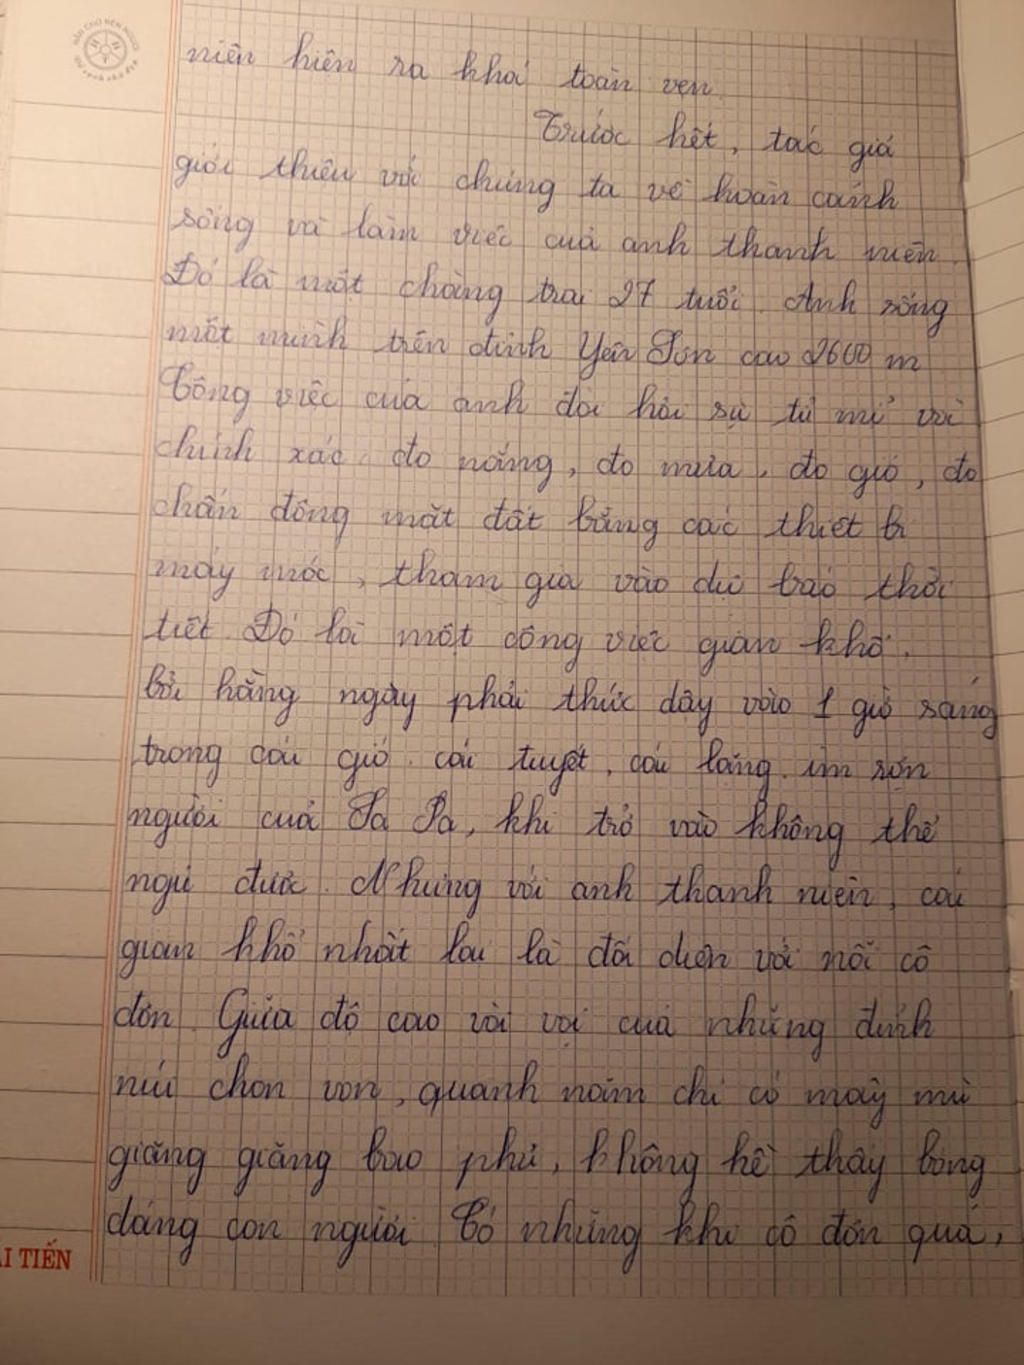 niên hiện ra khá toàn vẹn.
Trước hết, tác giả
giới thiệu với chúng ta về hoàn cảnh
sống và làm việc của anh thanh niên.
Đó là một chàng trai 27 tuổi. Anh sống
một mình trên đỉnh Yên Sơn cao 2600 m
Công việc của anh đòi hỏi sự tỉ mỉ và
chính xác: đo nắng, đo mưa, đo gió, đo
chấn động mặt đất bằng các thiết bị
máy móc, tham gia vào dự báo thời
tiết. Đó là một công việc gian khổ.
bởi hằng ngày phải thức dậy vào 1 giờ sáng
trong cái gió, cái tuyết, cái lặng im rợn
người của Sa Pa, khi trở vào không thể
ngủ được. Nhưng với anh thanh niên, cái
gian khổ nhất lại là đối diện với nỗi cô
đơn. Giữa độ cao vời vợi của những đỉnh
núi chon von, quanh năm chỉ có mây mù
giăng giăng bao phủ, không hề thấy bóng
dáng con người. Có những khi cô đơn quá,
ẢI TIẾN